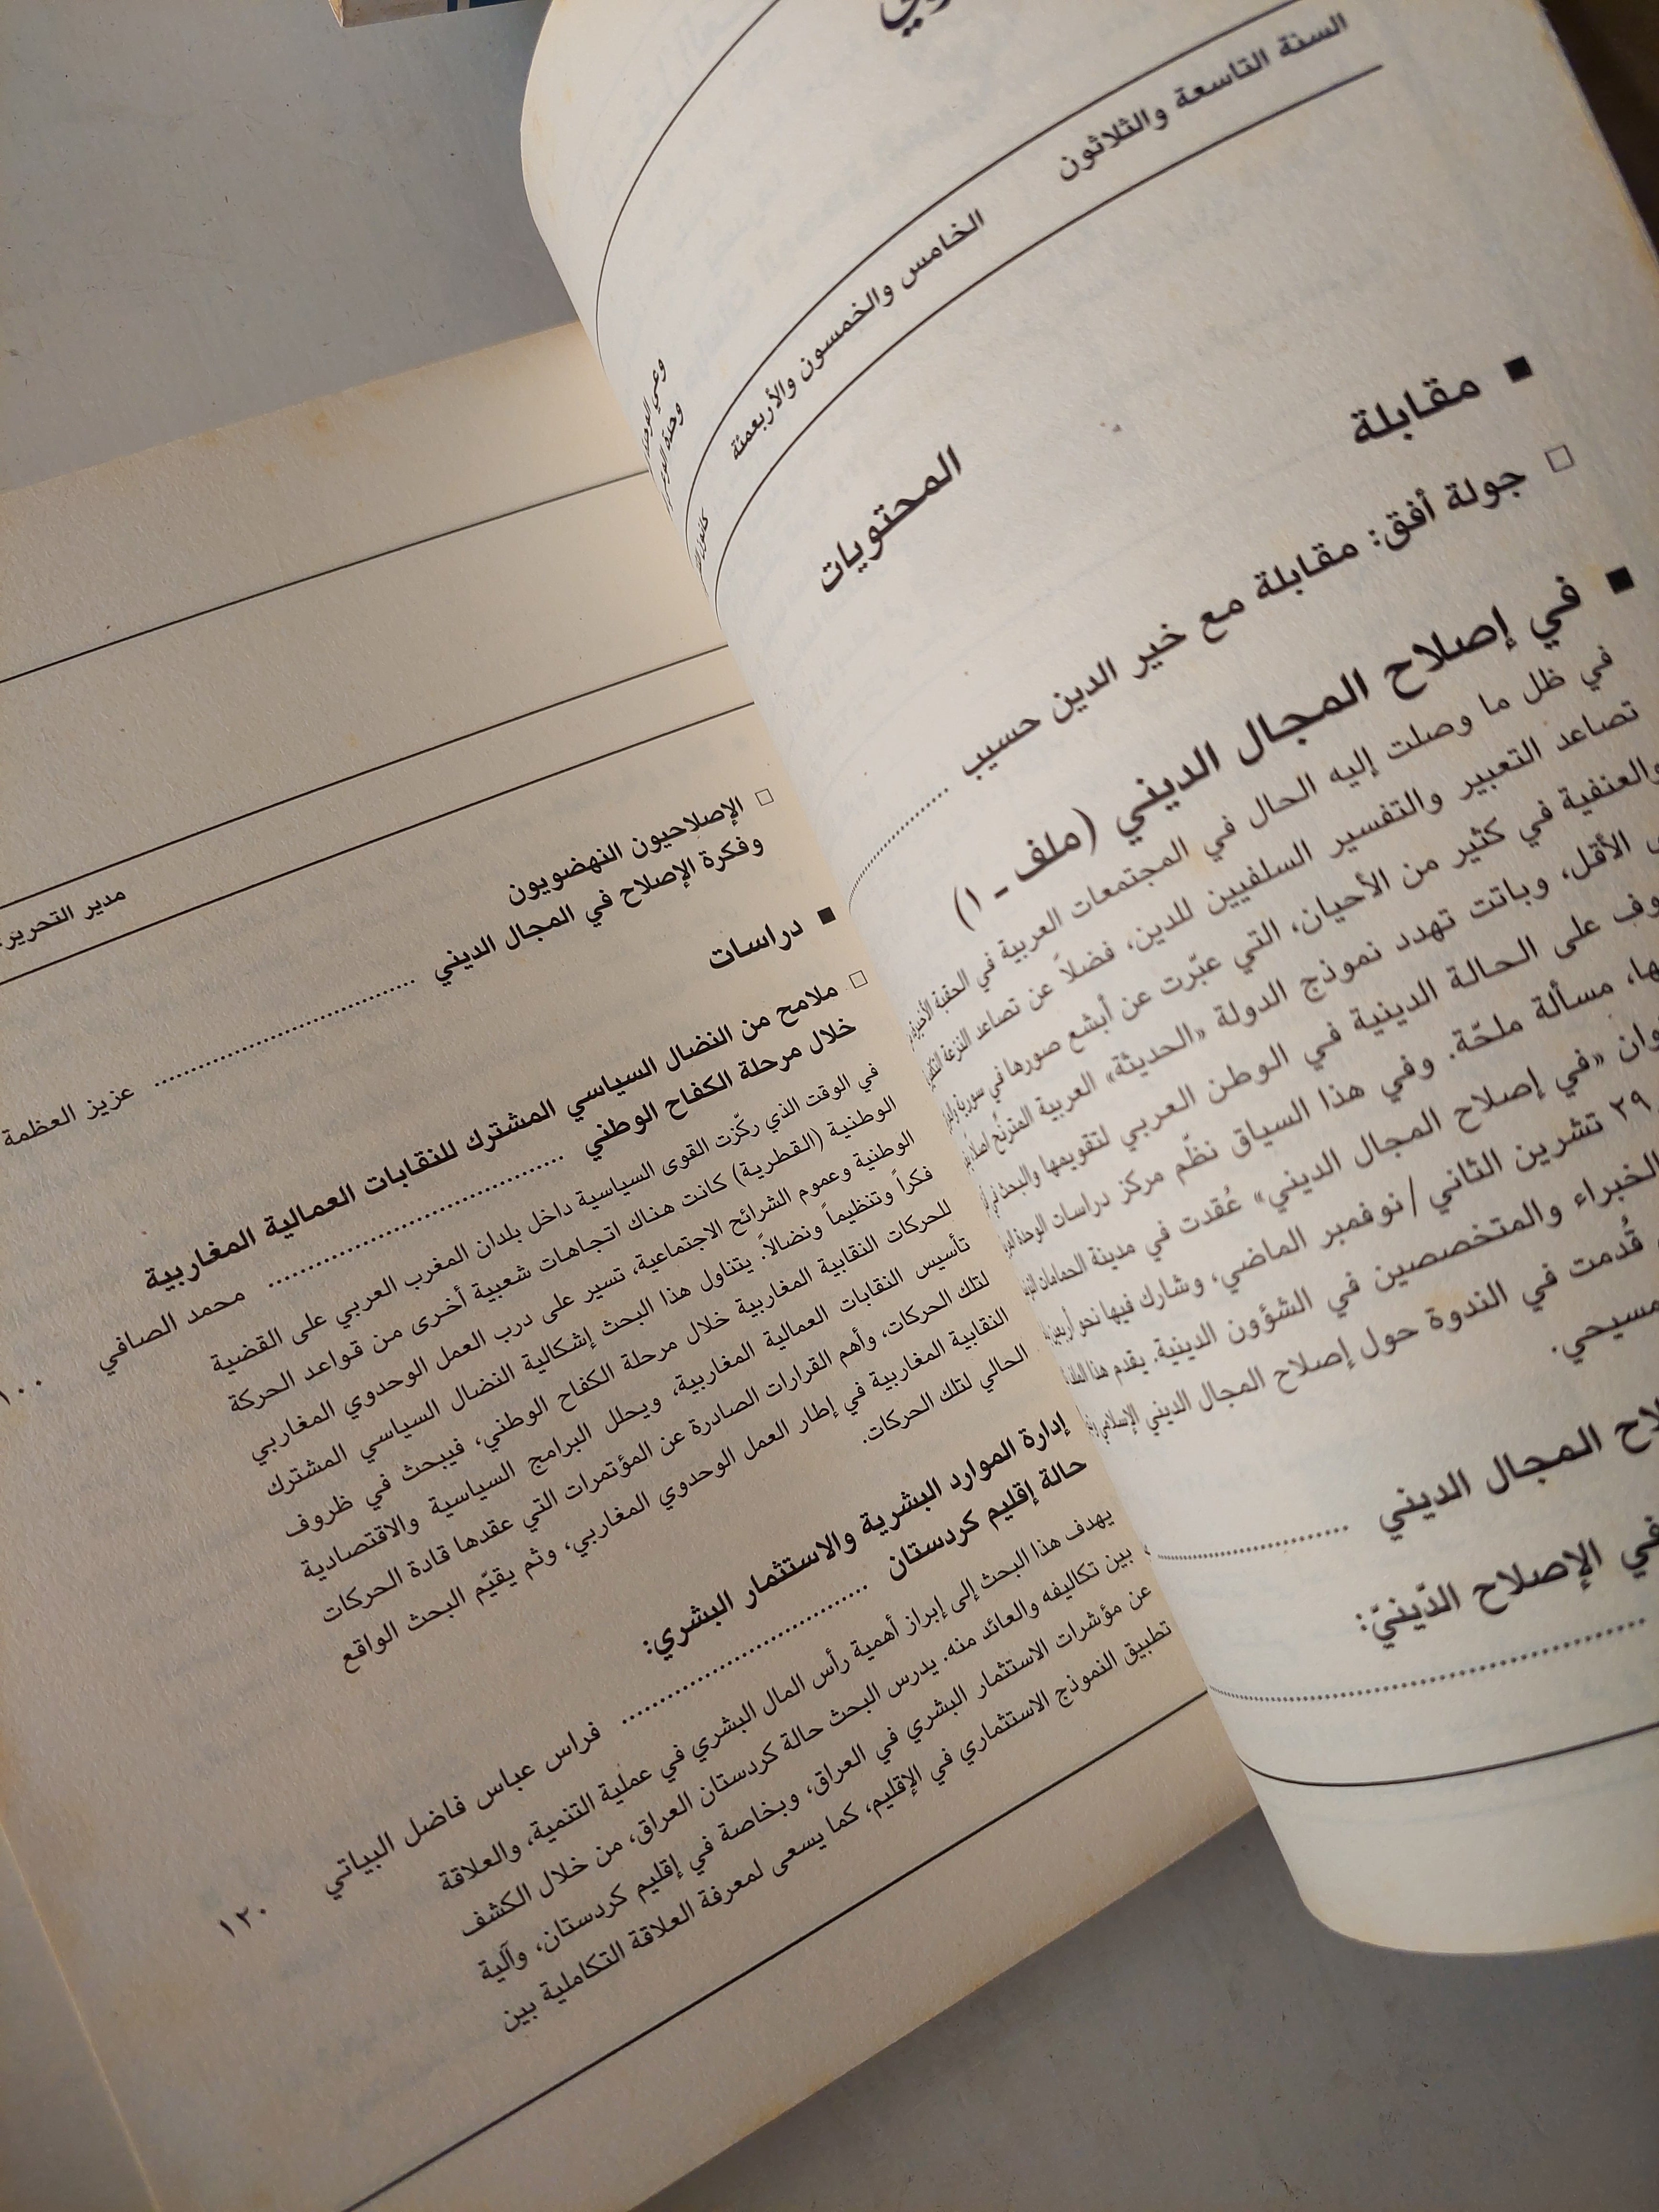 السنة التاسعة والثلاثون
الخامس والخمسون والأربعمئة
المحتويات
■ مقابلة
□ جولة أفق: مقابلة مع خير الدين حسيب ........
■ في إصلاح المجال الديني (ملف ـ ١)
في ظل ما وصلت إليه الحال في المجتمعات العربية في الحقبة الأخيرة
تصاعد التعبير والتفسير السلفيين للدين، فضلاً عن تصاعد النزعة
والعنفية في كثير من الأحيان، التي عبّرت عن أبشع صورها في سورية
الأقل، وباتت تهدد نموذج الدولة «الحديثة» العربية المترنّح أصلاً
على الحالة الدينية في الوطن العربي لتقويمها والبحث
مسألة ملحّة. وفي هذا السياق نظّم مركز دراسات الوحدة
«في إصلاح المجال الديني» عُقدت في مدينة الحمامات
٢٩ تشرين الثاني/نوفمبر الماضي، وشارك فيها نحو
الخبراء والمتخصصين في الشؤون الدينية. يقدم هذا
قُدمت في الندوة حول إصلاح المجال الديني الإسلامي
مسيحي.
المجال الديني ........
في الإصلاح الدّينيّ:
مدير التحرير:
□ الإصلاحيون النهضويون
وفكرة الإصلاح في المجال الديني ........ عزيز العظمة
■ دراسات
□ ملامح من النضال السياسي المشترك للنقابات العمالية المغاربية
خلال مرحلة الكفاح الوطني ........ محمد الصافي ١٠٠
في الوقت الذي ركّزت القوى السياسية داخل بلدان المغرب العربي على القضية
الوطنية (القطرية) كانت هناك اتجاهات شعبية أخرى من قواعد الحركة
الوطنية وعموم الشرائح الاجتماعية، تسير على درب العمل الوحدوي المغاربي
فكراً وتنظيماً ونضالاً. يتناول هذا البحث إشكالية النضال السياسي المشترك
للحركات النقابية المغاربية خلال مرحلة الكفاح الوطني، فيبحث في ظروف
تأسيس النقابات العمالية المغاربية، ويحلل البرامج السياسية والاقتصادية
لتلك الحركات، وأهم القرارات الصادرة عن المؤتمرات التي عقدها قادة الحركات
النقابية المغاربية في إطار العمل الوحدوي المغاربي، وثم يقيّم البحث الواقع
الحالي لتلك الحركات.
إدارة الموارد البشرية والاستثمار البشري:
حالة إقليم كردستان ........ فراس عباس فاضل البياتي ١٢٠
يهدف هذا البحث إلى إبراز أهمية رأس المال البشري في عملية التنمية، والعلاقة
بين تكاليفه والعائد منه. يدرس البحث حالة كردستان العراق، من خلال الكشف
عن مؤشرات الاستثمار البشري في العراق، وبخاصة في إقليم كردستان، وآلية
تطبيق النموذج الاستثماري في الإقليم، كما يسعى لمعرفة العلاقة التكاملية بين